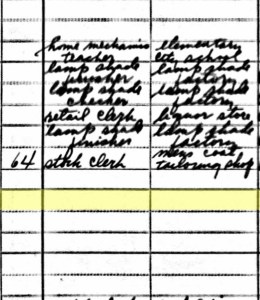 home mechanics elementary
teacher city school
lamp shade lamp shade
finisher factory
lamp shade lamp shade
checker factory
retail clerk liquor store
lamp shade lamp shade
finisher factory
mens coat
64 stock clerk tailoring shop